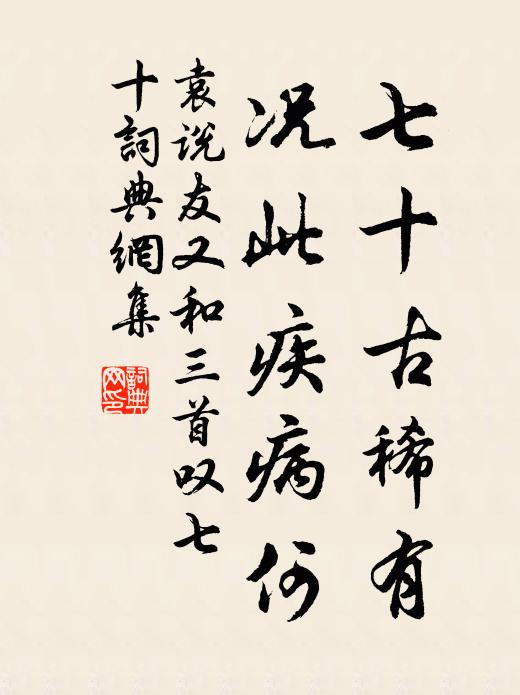 七十古稀有
况此疾病何
袁说友又和三首叹七
十詞典網集
詞典
网印